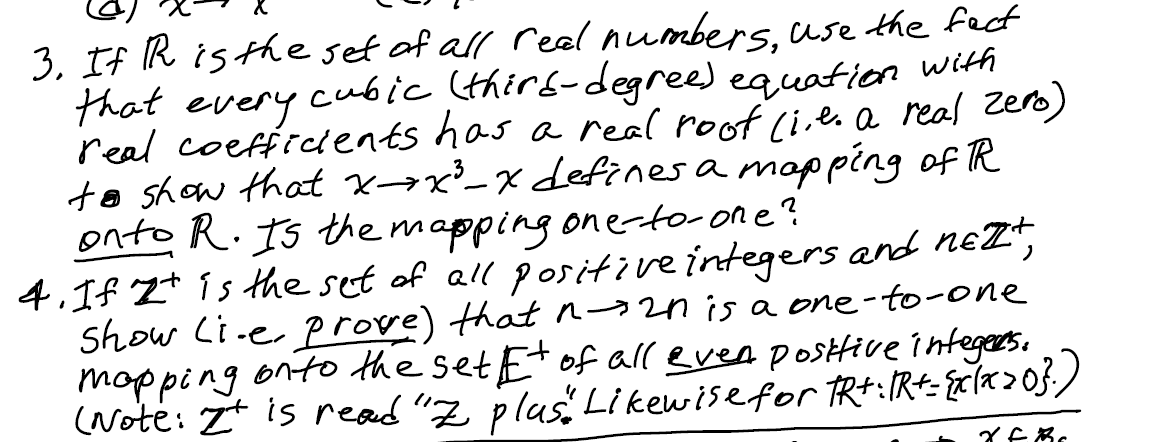 (d) x→ x
3. If ℝ is the set of all real numbers, use the fact
that every cubic (third-degree) equation with
real coefficients has a real root (i.e. a real zero)
to show that x→x³-x defines a mapping of ℝ
onto ℝ. Is the mapping one-to-one?
4. If ℤ⁺ is the set of all positive integers and n∈ℤ⁺,
show (i.e. prove) that n→2n is a one-to-one
mapping onto the set E⁺ of all even positive integers.
(Note: ℤ⁺ is read "Z plus." Likewise for ℝ⁺: ℝ⁺={x|x>0}.)